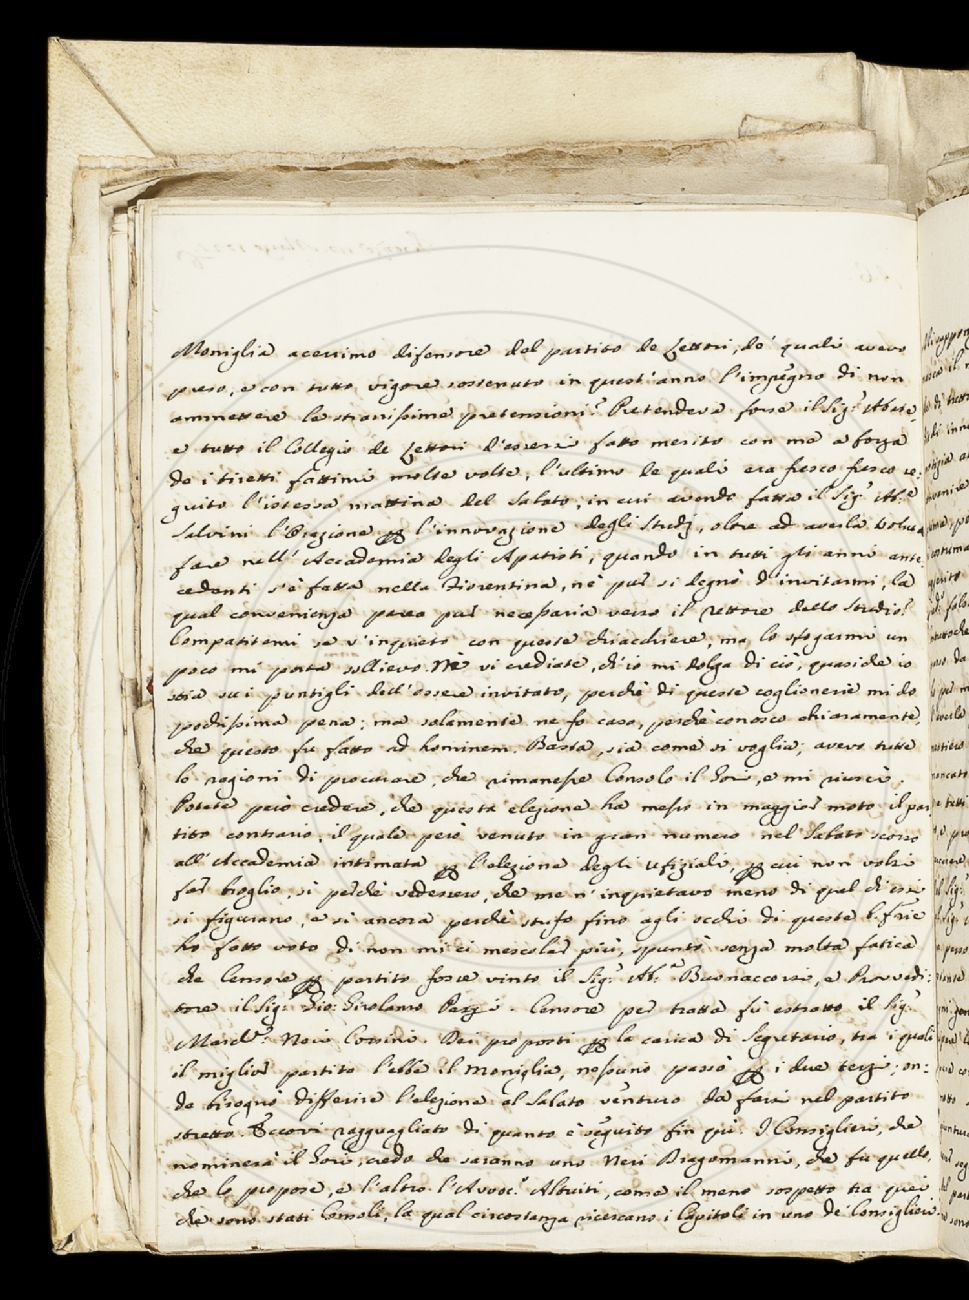 Moniglia acerrimo difensore del partito de Lettori, de' quali avevo
preso, e con tutto vigore sostenuto in quest'anno l'impegno di non
ammettere le stranissime pretensioni. Pretendeva forse il Sig.r Abate
e tutto il Collegio de Lettori d'essersi fatto merito con me a forza
de i tiretti fattimi molte volte, l'ultimo de quali era fresco fresco se:
guito l'istessa mattina del Sabato, in cui avendo fatta il Sig.r Ab.e
Salvini l'Orazione per l'innovazione degli Studj, oltre ad averla voluta
fare nell'Accademia degli Apatisti, quando in tutti gli anni ante:
cedenti s'è fatta nella Fiorentina, nè pur si degnò d'invitarmi, la
qual convenienza parea pur necessaria verso il Rettore dello Studio.
Compatitemi se v'inquieto con queste chiacchiere, ma lo sfogarmi un
poco mi porta sollievo. Nè vi crediate, ch'io mi dolga di ciò, quasichè io
stia su i puntigli dell'essere invitato, perchè di queste coglionerie mi do
pochissima pena; ma solamente ne fo caso, perchè conosco chiaramente,
che questo fu fatto ad hominem. Basta, sia come si voglia; avevo tutte
le ragioni di procurare, che rimanesse Consolo il Gori, e mi riuscì.
Potete però credere, che questa elezione ha messo in maggior moto il par:
tito contrario, il quale però venuto in gran numero nel Sabato scorso
all'Accademia intimata per l'elezione degli Ufiziali, per cui non volsi
far broglio, sì perchè vedessero, che me n'inquietavo meno di quel ch'essi
si figurano, e sì ancora perchè stufo fino agli occhi di queste b. f.rie
ho fatto voto di non mi ci mescolar più, spuntò senza molta fatica
che Censore per partito fosse vinto il Sig.r Ab.e Buonaccorsi, e Provvedi:
tore il Sig.r Gio: Girolamo Pazzi. Censore per tratta fù estratto il Sig.r
March.e Neri Corsini. Sei proposti per la carica di Segretario, tra i quali
il miglior partito l'ebbe il Moniglia, nessuno passò per i due terzi; on:
de bisognò differire l'elezione al Sabato venturo da farsi nel partito
stretto. Eccovi ragguagliato di quanto è seguito fin quì. I Consiglieri, che
nominerà il Gori, credo che saranno uno Neri Dragomanni, che fù quello,
che lo propose, e l'altro l'Avvoc.o Altoviti, come il meno sospetto tra quei
che sono stati Consoli, la qual circostanza ricercano i Capitoli in uno de' Consiglieri.